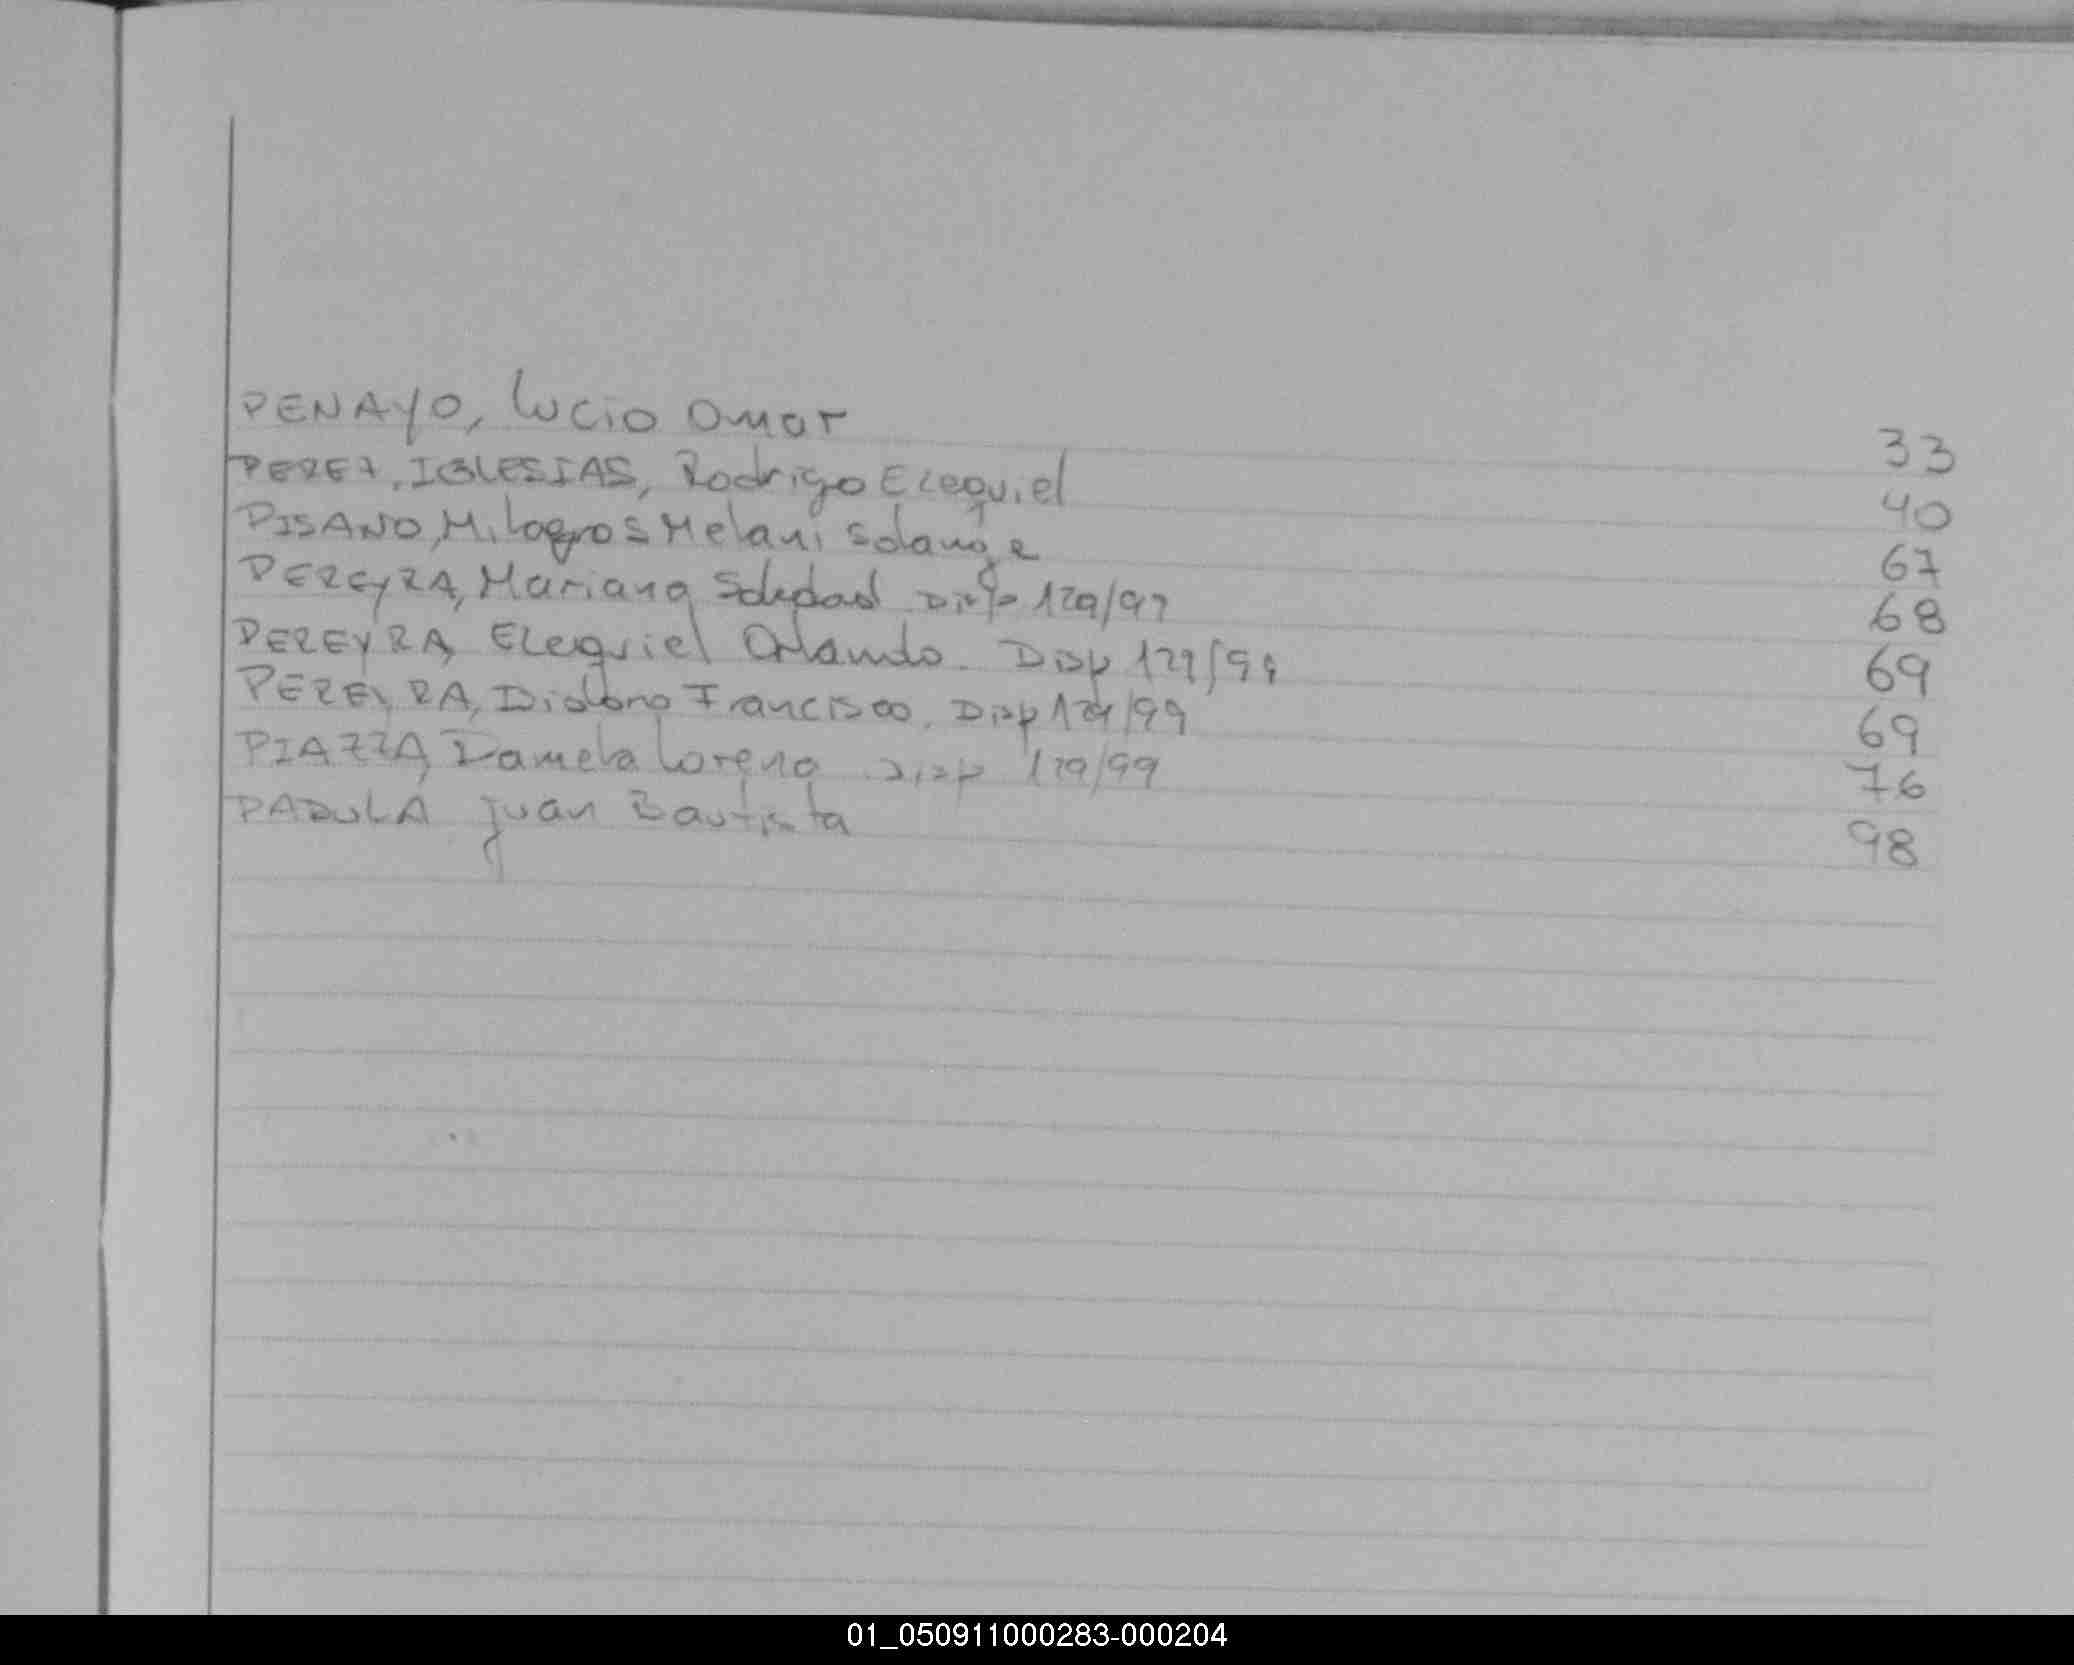 PENAYO, Lucio Omar 33
PEREZ, IGLESIAS, Rodrigo Ezequiel 40
PISANO, Milagros Melani Solange 67
PEREYRA, Mariana Soledad Disp 129/97 68
PEREYRA, Ezequiel Orlando. Disp 129/99 69
PEREYRA, Francisco. Disp 129/99 69
PIAZZA, Daniela Lorena Disp 129/99 76
PADULA Juan Bautista 98
01_050911000283-000204